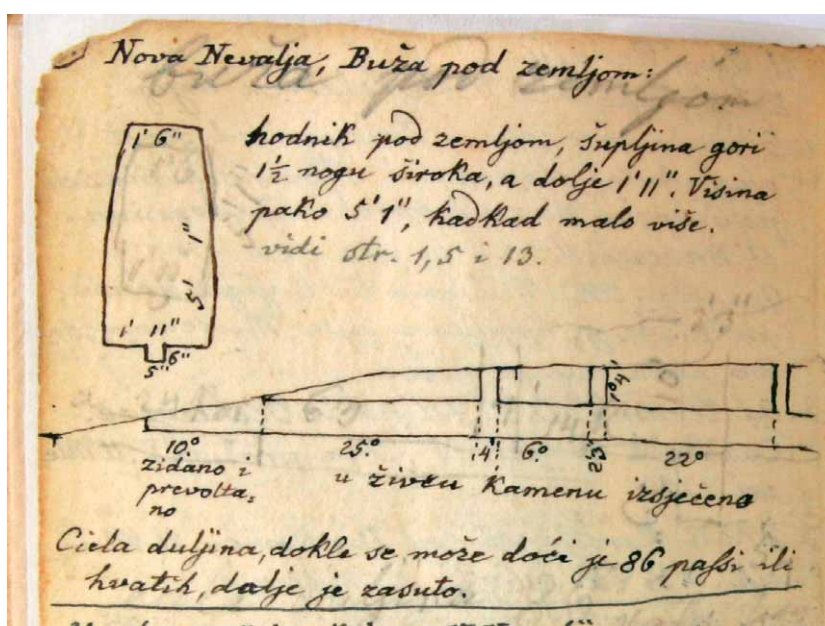 Nova Nevalja, Buža pod zemljom:
hodnik pod zemljom, šupljina gori
1½ nogu široka, a dolje 1'11". Visina
pako 5'1", kadkad malo više.
vidi str. 1, 5 i 13.
1' 6"
5' 1"
1' 11"
6"
5"
1°4'
10° 25° 4' 6° 2'3" 22°
zidano i
prevolta-
no
u živcu kamenu izsječeno
Ciela duljina, dokle se može doći je 86 passi ili
hvatih, dalje je zasuto.